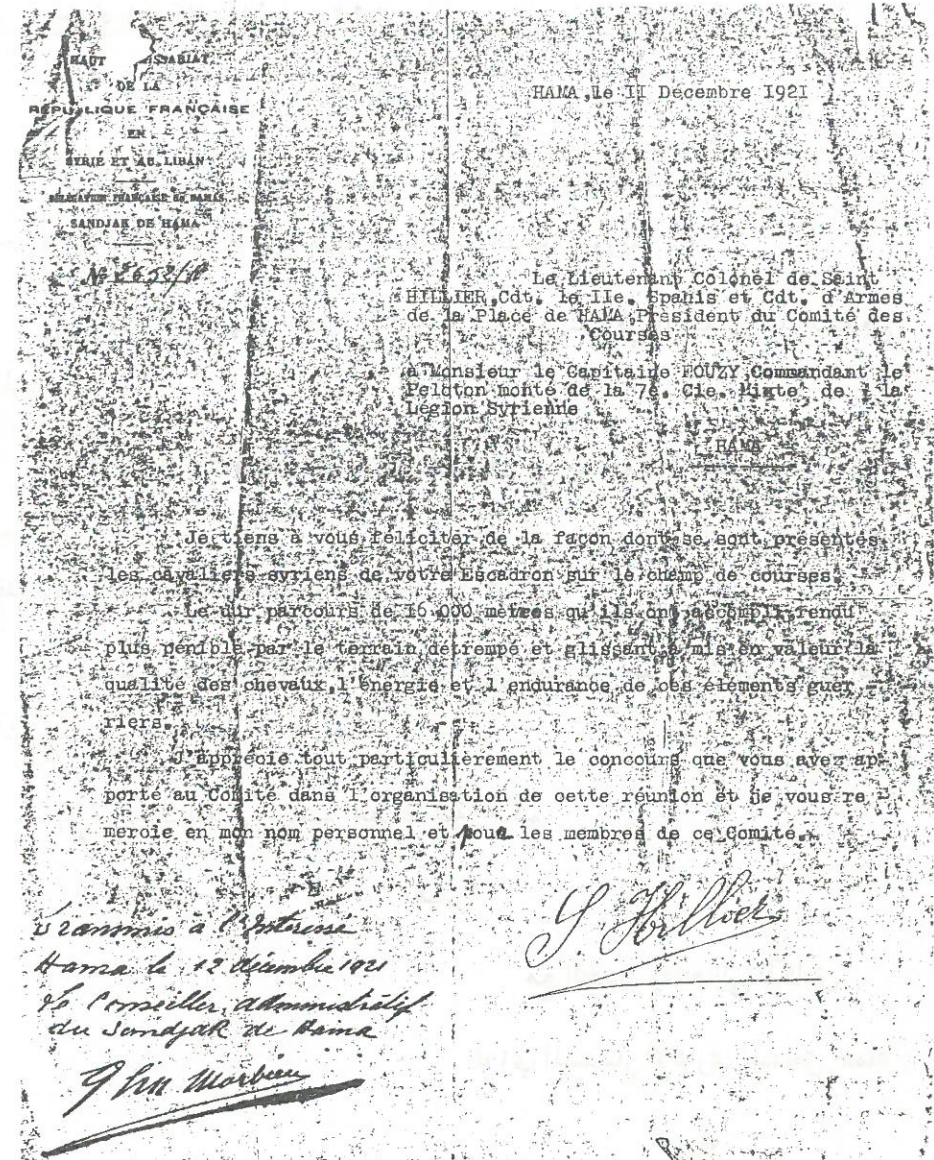 HAUT SSARIAT
DE LA
REPUBLIQUE FRANÇAISE
EN
SYRIE ET AU LIBAN
DELEGATION FRANÇAISE DE DAMAS
SANDJAK DE HAMA
HAMA, le II Decembre 1921
Le Lieutenant Colonel de Saint
HILLIER, Cdt. le IIe. Spahis et Cdt. d'Armes
de la Place de HAMA, President du Comité des
Courses
à Monsieur le Capitaine FOUZY Commandant le
Peloton monté de la 7e. Cie. Mixte de la
Legion Syrienne
HAMA
Je tiens à vous féliciter de la façon dont se sont présentés
les cavaliers syriens de votre Escadron sur le champ de courses.
Le dur parcours de 16.000 mètres qu'ils ont accompli rendu
plus pénible par le terrain détrempé et glissant a mis en valeur la
qualité des chevaux, l'énergie et l'endurance de ces éléments guer
riers.
J'apprécie tout particulièrement le concours que vous avez ap-
porté au Comité dans l'organisation de cette réunion et je vous re -
mercie en mon nom personnel et pour les membres de ce Comité.
S. Hillier
Transmis à l'Intéressé
Hama le 12 décembre 1921
Le Conseiller administratif
du Sandjak de Hama